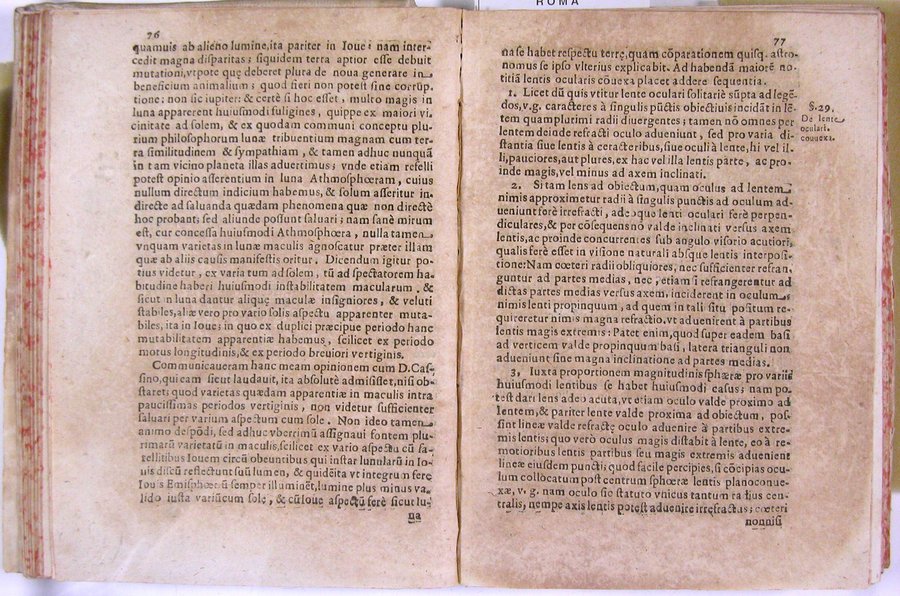 ROMA
76
quamuis ab alieno lumine, ita pariter in Ioue: nam inter-
cedit magna disparitas; siquidem terra aptior esse debuit
mutationi, vtpote quę deberet plura de noua generare in
beneficium animalium; quod fieri non potest sine corrup-
tione: non sic iupiter: & certè si hoc esset, multo magis in
luna apparerent huiusmodi fuligines, quippe ex maiori vi-
cinitate ad solem, & ex quodam communi conceptu plu-
rium philosophorum lunæ tribuentium magnam cum ter-
ra similitudinem & sympathiam, & tamen adhuc nunquã
in tam vicino planeta illas aduertimus; vnde etiam refelli
potest opinio asserentium in luna Athmosphœram, cuius
nullum directum indicium habemus, & solum asseritur in-
directe ad saluanda quędam phenomena quæ non directè
hoc probant; sed aliunde possunt saluari; nam sanè mirum
est, cur concessa huiusmodi Athmosphœra, nulla tamen
vnquam varietas in lunæ maculis agnoscatur præter illam
quæ ab aliis causis manifestis oritur. Dicendum igitur po-
tius videtur, ex varia tum ad solem, tũ ad spectatorem ha-
bitudine haberi huiusmodi instabilitatem macularum. &
sicut in luna dantur aliquę maculæ insigniores, & veluti
stabiles, aliæ vero pro vario solis aspectu apparenter muta-
biles, ita in Ioue; in quo ex duplici præcipue periodo hanc
mutabilitatem apparentiæ habemus, scilicet ex periodo
motus longitudinis, & ex periodo breuiori vertiginis.
Communicaueram hanc meam opinionem cum D. Cas-
sino, qui eam sicut laudauit, ita absolutè admisisset, nisi ob-
staret; quod varietas quædam apparentiæ in maculis intra
paucissimas periodos vertiginis, non videtur sufficienter
saluari per varium aspectum cum sole. Non ideo tamen
animo despõdi, sed adhuc vberrimũ assignaui fontem plu-
rimarũ varietatũ in maculis, scilicet ex vario aspectu cũ sa-
tellitibus Iouem circũ obeuntibus qui instar lunularũ in Io-
uis discũ reflectunt suũ lumen, & quidẽ ita vt integrum ferę
Iouis Emisphœrũ semper illuminẽt, lumine plus minus va-
lido iuxta variũ cum sole, & cũ Ioue aspectũ ferè sicut lu-
na
77
na se habet respectu terrę, quam cõparationem quisq. astro-
nomus se ipso vlterius explicabit. Ad habendã maiorẽ no-
titiã lentis ocularis cõuexa placet addere sequentia.
1. Licet dũ quis vtitur lente oculari solitariè sũpta ad legẽ-
dos, v.g. caracteres à singulis pũctis obiectiuis incidãt in lẽ-
tem quamplurimi radii diuergentes; tamen nõ omnes per
lentem deinde refracti oculo adueniunt, sed pro varia di-
stantia siue lentis à ceracteribus, siue oculi à lente, hi vel il-
li, pauciores, aut plures, ex hac vel illa lentis parte, ac pro-
inde magis, vel minus ad axem inclinati.
§. 29,
De lente
oculari.
conuexa.
2. Si tam lens ad obiectum, quam oculus ad lentem
nimis approximetur radii à singulis punctis ad oculum ad-
ueniunt ferè irrefracti, adeoque lenti oculari ferè perpen-
diculares, & per cõsequens nõ valde inclinati versus axem
lentis, ac proinde concurrentes sub angulo visorio acutiori,
qualis ferè esset in visione naturali absque lentis interposi-
tione: Nam cœteri radii obliquiores, nec sufficienter refran-
guntur ad partes medias, nec, etiam si refrangerentur ad
dictas partes medias versus axem, inciderent in oculum
nimis lenti propinquum, ad quem in tali situ positum re-
quireretur nimis magna refractio, vt aduenirent à partibus
lentis magis extremis: Patet enim, quod super eadem basi
ad verticem valde propinquum basi, latera trianguli non
adueniunt sine magna inclinatione ad partes medias.
3. Iuxta proportionem magnitudinis sphœræ pro variis
huiusmodi lentibus se habet huiusmodi casus; nam po-
test dari lens adeo acuta, vt etiam oculo valde proximo ad
lentem, & pariter lente valde proxima ad obiectum, pos-
sint lineæ valde refractę oculo aduenire à partibus extre-
mis lentis; quo verò oculus magis distabit à lente, eo à re-
motioribus lentis partibus seu magis extremis aduenient
lineæ eiusdem puncti; quod facile percipies, si cõcipias ocu-
lum collocatum post centrum sphœræ lentis planoconue-
xæ, v.g. nam oculo sic statuto vnicus tantum radius cen-
tralis, nempe axis lentis potest aduenire irrefractas; cœteri
nonnisi